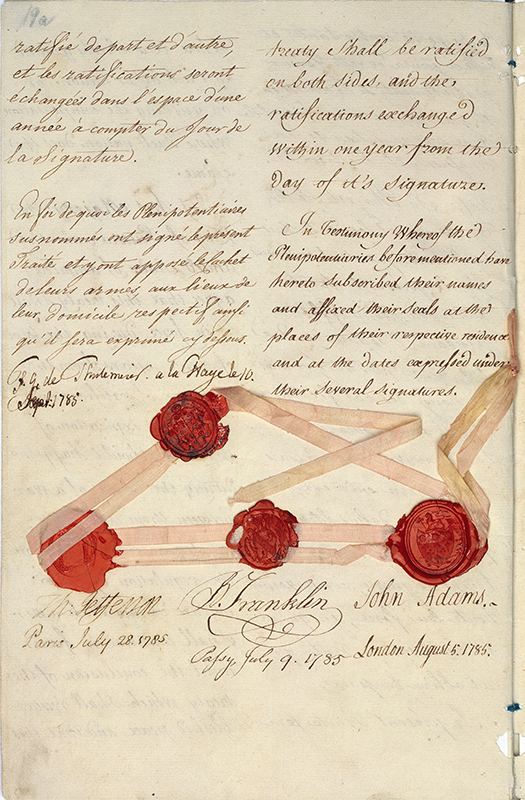 19a
ratifié de part et d'autre,
et les ratifications seront
échangées dans l'espace d'une
année à compter du Jour de
la Signature.
En foi de quoi les Plenipotentiaires
susnommés ont signé le present
Traité et y ont apposé le cachet
de leurs armes, aux lieux de
leur domicile respectif ainsi
qu'il sera exprimé cy dessous.
F. G. de Thulemeier. a la Haye le 10.
Sept. 1785.
treaty shall be ratified
on both sides, and the
ratifications exchanged
within one year from the
day of it's signature.
In Testimony Whereof the
Plenipotentiaries beforementioned have
hereto subscribed their names
and affixed their seals at the
places of their respective residence
and at the dates expressed under
their several signatures.
Th: Jefferson
Paris July 28. 1785.
B. Franklin
Passy, July 9. 1785
John Adams.
London August 5. 1785.